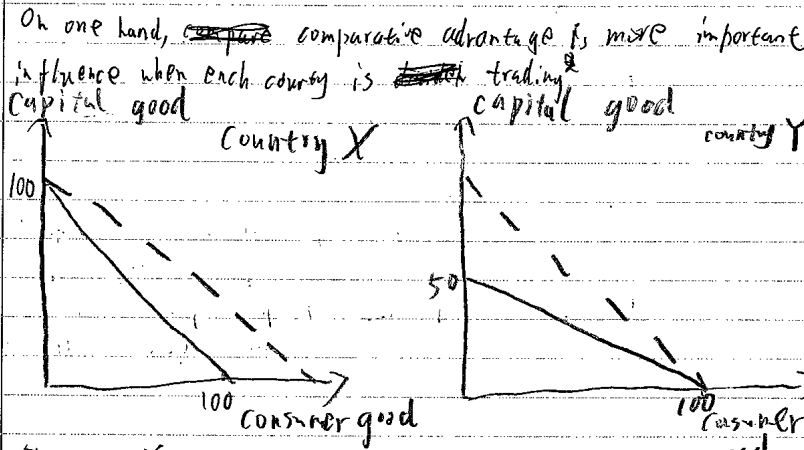 On one hand, comparative advantage is more important
influence when each county is trading
Capital good
Country X
100
100
Consumer good
capital good
country Y
50
100
Cosumer